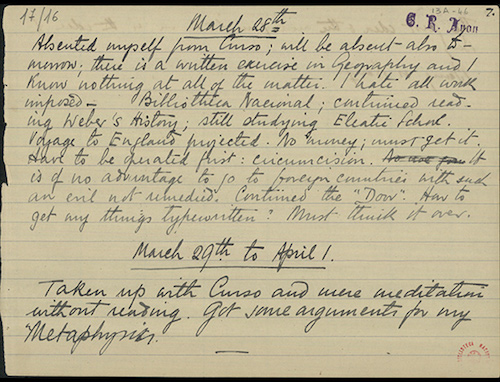 17/16
March 28th
13A-46
C. R. Anon
7.
Absented myself from Curso; will be absent also to-
morrow; there is a written exercise in Geography and I
know nothing at all of the matter. I hate all work
imposed - Bibliotheca Nacional; continued read-
ing Weber's History; still studying Eleatic School.
Voyage to England projected. No money; must get it.
Have to be operated first: circumcision. it
is of no advantage to go to foreign countries with such
an evil not remedied. Continued the "Door". How to
get my things typewritten? Must think it over.
March 29th to April 1.
Taken up with Curso and mere meditation
without reading. Got some arguments for my
Metaphysics.